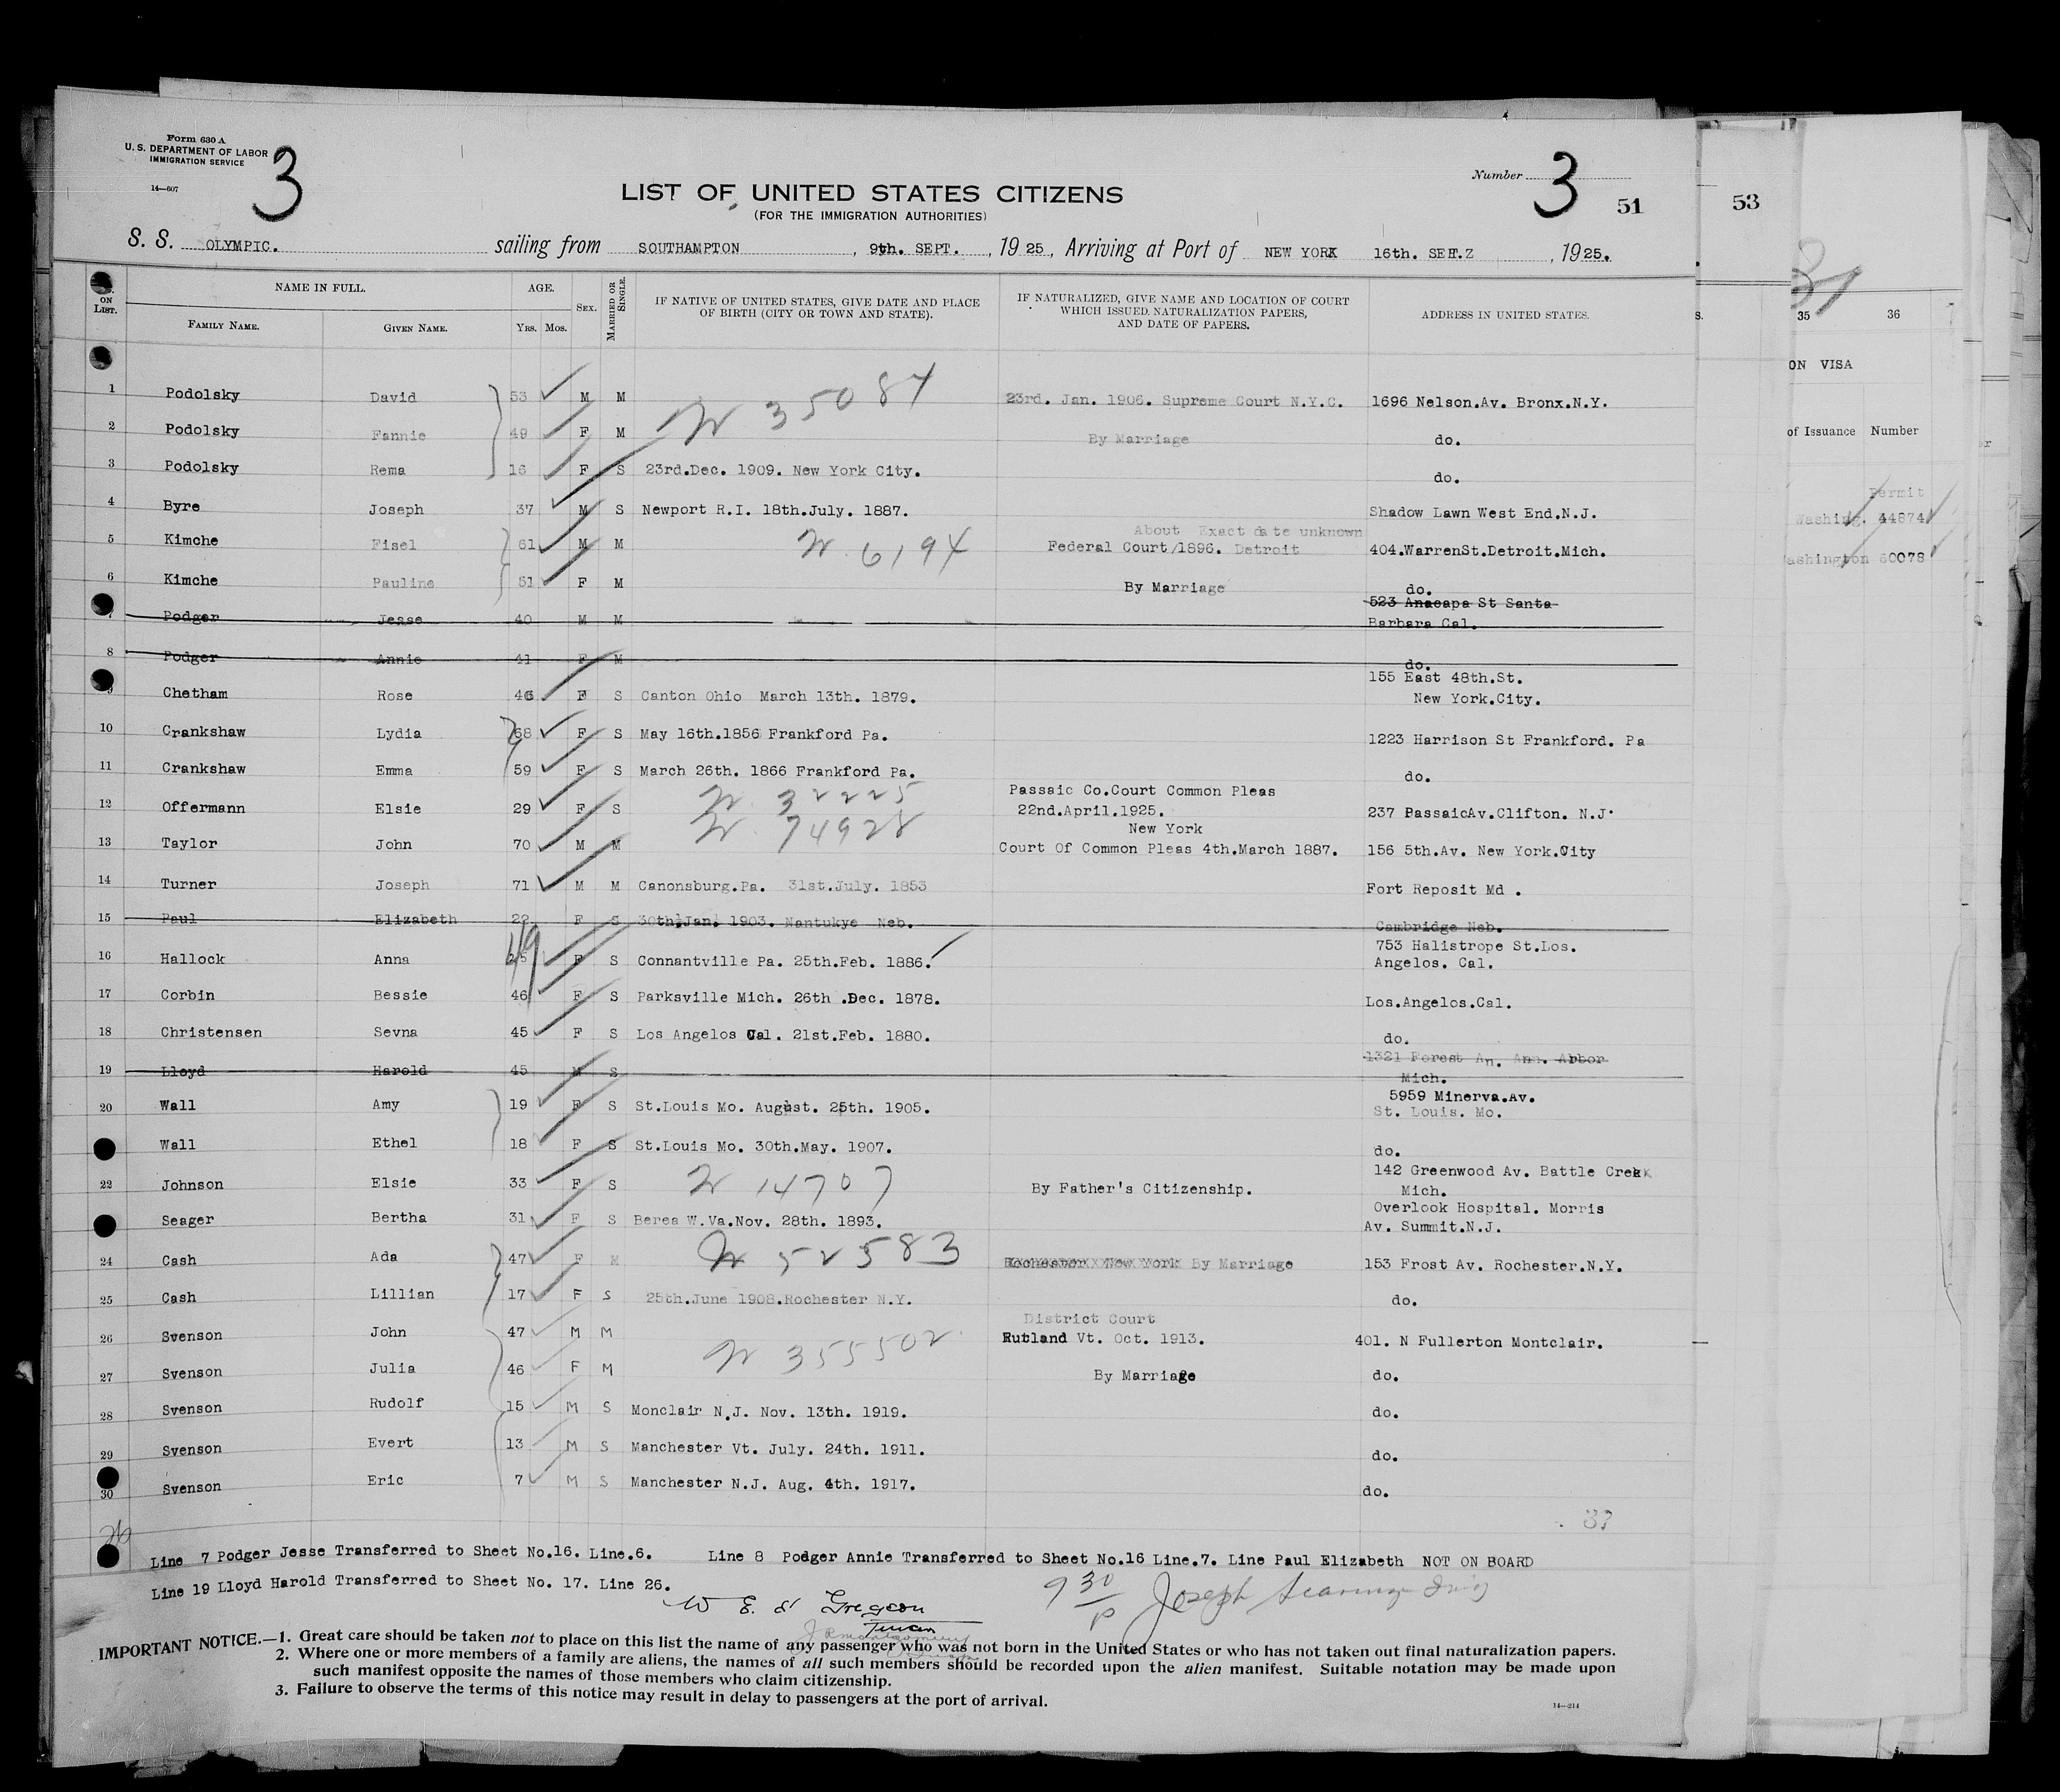 Form 630 A
U. S. DEPARTMENT OF LABOR
IMMIGRATION SERVICE
14—607
3
Number 3 51
LIST OF UNITED STATES CITIZENS
(FOR THE IMMIGRATION AUTHORITIES)
S. S. OLYMPIC. sailing from SOUTHAMPTON, 9th. SEPT., 1925, Arriving at Port of NEW YORK 16th. SEPT., 1925.
ON LIST. NAME IN FULL. FAMILY NAME. GIVEN NAME. AGE. YRS. MOS. SEX. MARRIED OR SINGLE. IF NATIVE OF UNITED STATES, GIVE DATE AND PLACE OF BIRTH (CITY OR TOWN AND STATE). IF NATURALIZED, GIVE NAME AND LOCATION OF COURT WHICH ISSUED NATURALIZATION PAPERS, AND DATE OF PAPERS. ADDRESS IN UNITED STATES.
1 Podolsky David 53 M M 35084 23rd. Jan. 1906. Supreme Court N.Y.C. 1696 Nelson.Av. Bronx.N.Y.
2 Podolsky Fannie 49 F M By Marriage do.
3 Podolsky Rema 16 F S 23rd.Dec. 1909. New York City. do.
4 Byre Joseph 37 M S Newport R.I. 18th.July. 1887. Shadow Lawn West End.N.J.
About Exact date unknown
5 Kimche Fisel 61 M M 6194 Federal Court/1896. Detroit 404.WarrenSt.Detroit.Mich.
6 Kimche Pauline 51 F M By Marriage do.
523 Anacapa St Santa
7 Podger Jesse 40 M M Barbara Cal.
8 Podger Annie 41 F M do.
155 East 48th.St.
9 Chetham Rose 46 F S Canton Ohio March 13th. 1879. New York.City.
10 Crankshaw Lydia 68 F S May 16th.1856 Frankford Pa. 1223 Harrison St Frankford. Pa
11 Crankshaw Emma 59 F S March 26th. 1866 Frankford Pa. do.
Passaic Co.Court Common Pleas
12 Offermann Elsie 29 F S 32225 22nd.April.1925. 237 PassaicAv.Clifton. N.J.
New York
13 Taylor John 70 M M 74928 Court Of Common Pleas 4th.March 1887. 156 5th.Av. New York.City
14 Turner Joseph 71 M M Canonsburg.Pa. 31st.July. 1853 Fort Reposit Md .
15 Paul Elizabeth 22 F S 30th.Jan. 1903. Nantukye Neb. Cambridge Neb.
49 753 Halistrope St.Los.
16 Hallock Anna F S Connantville Pa. 25th.Feb. 1886. Angelos. Cal.
17 Corbin Bessie 46 F S Parksville Mich. 26th .Dec. 1878. Los.Angelos.Cal.
18 Christensen Sevna 45 F S Los Angelos Cal. 21st.Feb. 1880. do.
1321 Forest An. Ann. Arbor
19 Lloyd Harold 45 M S Mich.
5959 Minerva.Av.
20 Wall Amy 19 F S St.Louis Mo. August. 25th. 1905. St. Louis. Mo.
Wall Ethel 18 F S St.Louis Mo. 30th.May. 1907. do.
142 Greenwood Av. Battle Creek
22 Johnson Elsie 33 F S 14707 By Father's Citizenship. Mich.
Overlook Hospital. Morris
Seager Bertha 31 F S Berea W.Va.Nov. 28th. 1893. Av. Summit.N.J.
24 Cash Ada 47 F M 52583 Rochester New York By Marriage 153 Frost Av. Rochester.N.Y.
25 Cash Lillian 17 F S 25th.June 1908.Rochester N.Y. do.
District Court
26 Svenson John 47 M M Rutland Vt. Oct. 1913. 401. N Fullerton Montclair.
27 Svenson Julia 46 F M 355502 By Marriage do.
28 Svenson Rudolf 15 M S Monclair N.J. Nov. 13th. 1919. do.
29 Svenson Evert 13 M S Manchester Vt. July. 24th. 1911. do.
30 Svenson Eric 7 M S Manchester N.J. Aug. 4th. 1917. do.
26
Line 7 Podger Jesse Transferred to Sheet No.16. Line.6. Line 8 Podger Annie Transferred to Sheet No.16 Line.7. Line Paul Elizabeth NOT ON BOARD
Line 19 Lloyd Harold Transferred to Sheet No. 17. Line 26.
9 30 P Joseph
IMPORTANT NOTICE.—1. Great care should be taken not to place on this list the name of any passenger who was not born in the United States or who has not taken out final naturalization papers.
2. Where one or more members of a family are aliens, the names of all such members should be recorded upon the alien manifest. Suitable notation may be made upon
such manifest opposite the names of those members who claim citizenship.
3. Failure to observe the terms of this notice may result in delay to passengers at the port of arrival.
14—214
53
35 36
ON VISA
of Issuance Number
Permit
Washing. 44874
ashington 60078